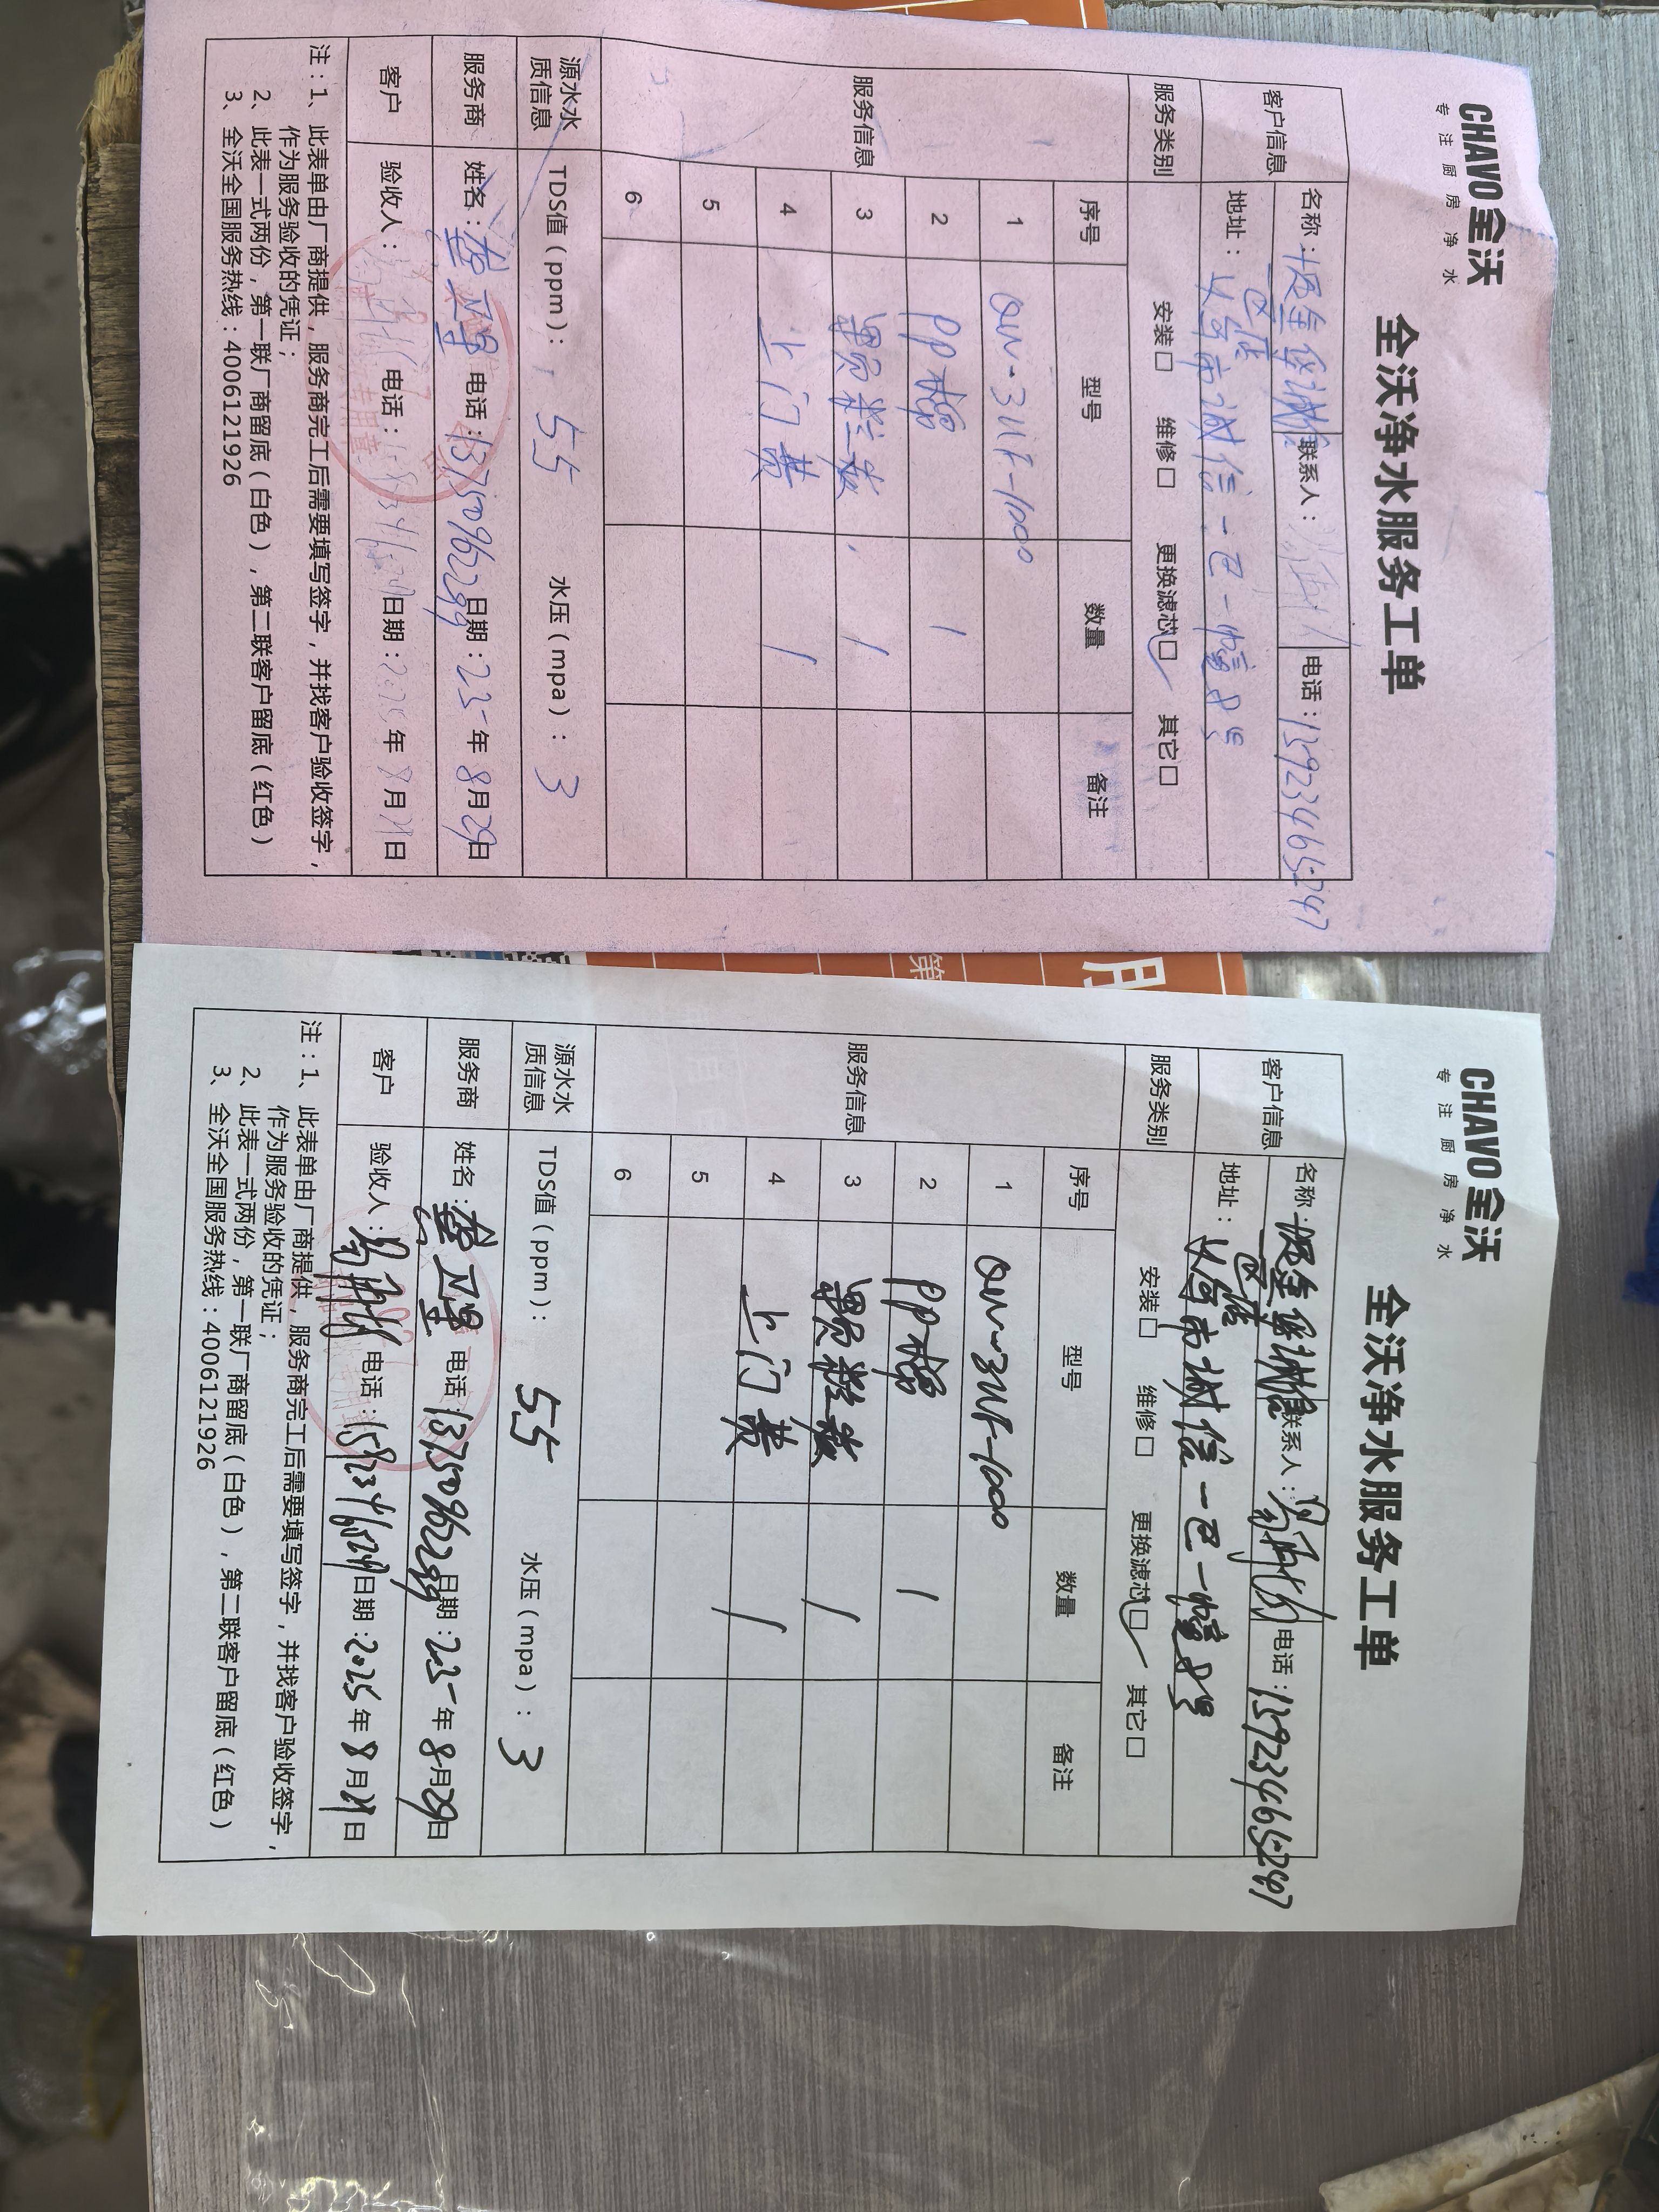 CHAVO 全沃
专注厨房净水
全沃净水服务工单
客户信息
名称：
联系人：
电话：15923465247
地址：义乌市诚信一区一幢8号
服务类别
安装□ 维修□ 更换滤芯□ 其它□
服务信息
序号 型号 数量 备注
1 QW-3UF-1000
2 PP棉 1
3 1
4 上门费 1
5
6
源水水质信息
TDS值（ppm）：55 水压（mpa）：3
服务商
姓名： 电话：13750962299 日期：25年8月29日
客户
验收人： 电话： 日期：2025年8月29日
注：1、此表单由厂商提供，服务商完工后需要填写签字，并找客户验收签字，
作为服务验收的凭证；
2、此表一式两份，第一联厂商留底（白色），第二联客户留底（红色）
3、全沃全国服务热线：4006121926
月
第
CHAVO 全沃
专注厨房净水
全沃净水服务工单
客户信息
名称：
联系人：
电话：15923465247
地址：义乌市诚信一区一幢8号
服务类别
安装□ 维修□ 更换滤芯□ 其它□
服务信息
序号 型号 数量 备注
1 QW-3UF-1000
2 PP棉 1
3 1
4 上门费 1
5
6
源水水质信息
TDS值（ppm）：55 水压（mpa）：3
服务商
姓名： 电话：13750962299 日期：25年8月29日
客户
验收人： 电话：15923465247 日期：2025年8月29日
注：1、此表单由厂商提供，服务商完工后需要填写签字，并找客户验收签字，
作为服务验收的凭证；
2、此表一式两份，第一联厂商留底（白色），第二联客户留底（红色）
3、全沃全国服务热线：4006121926